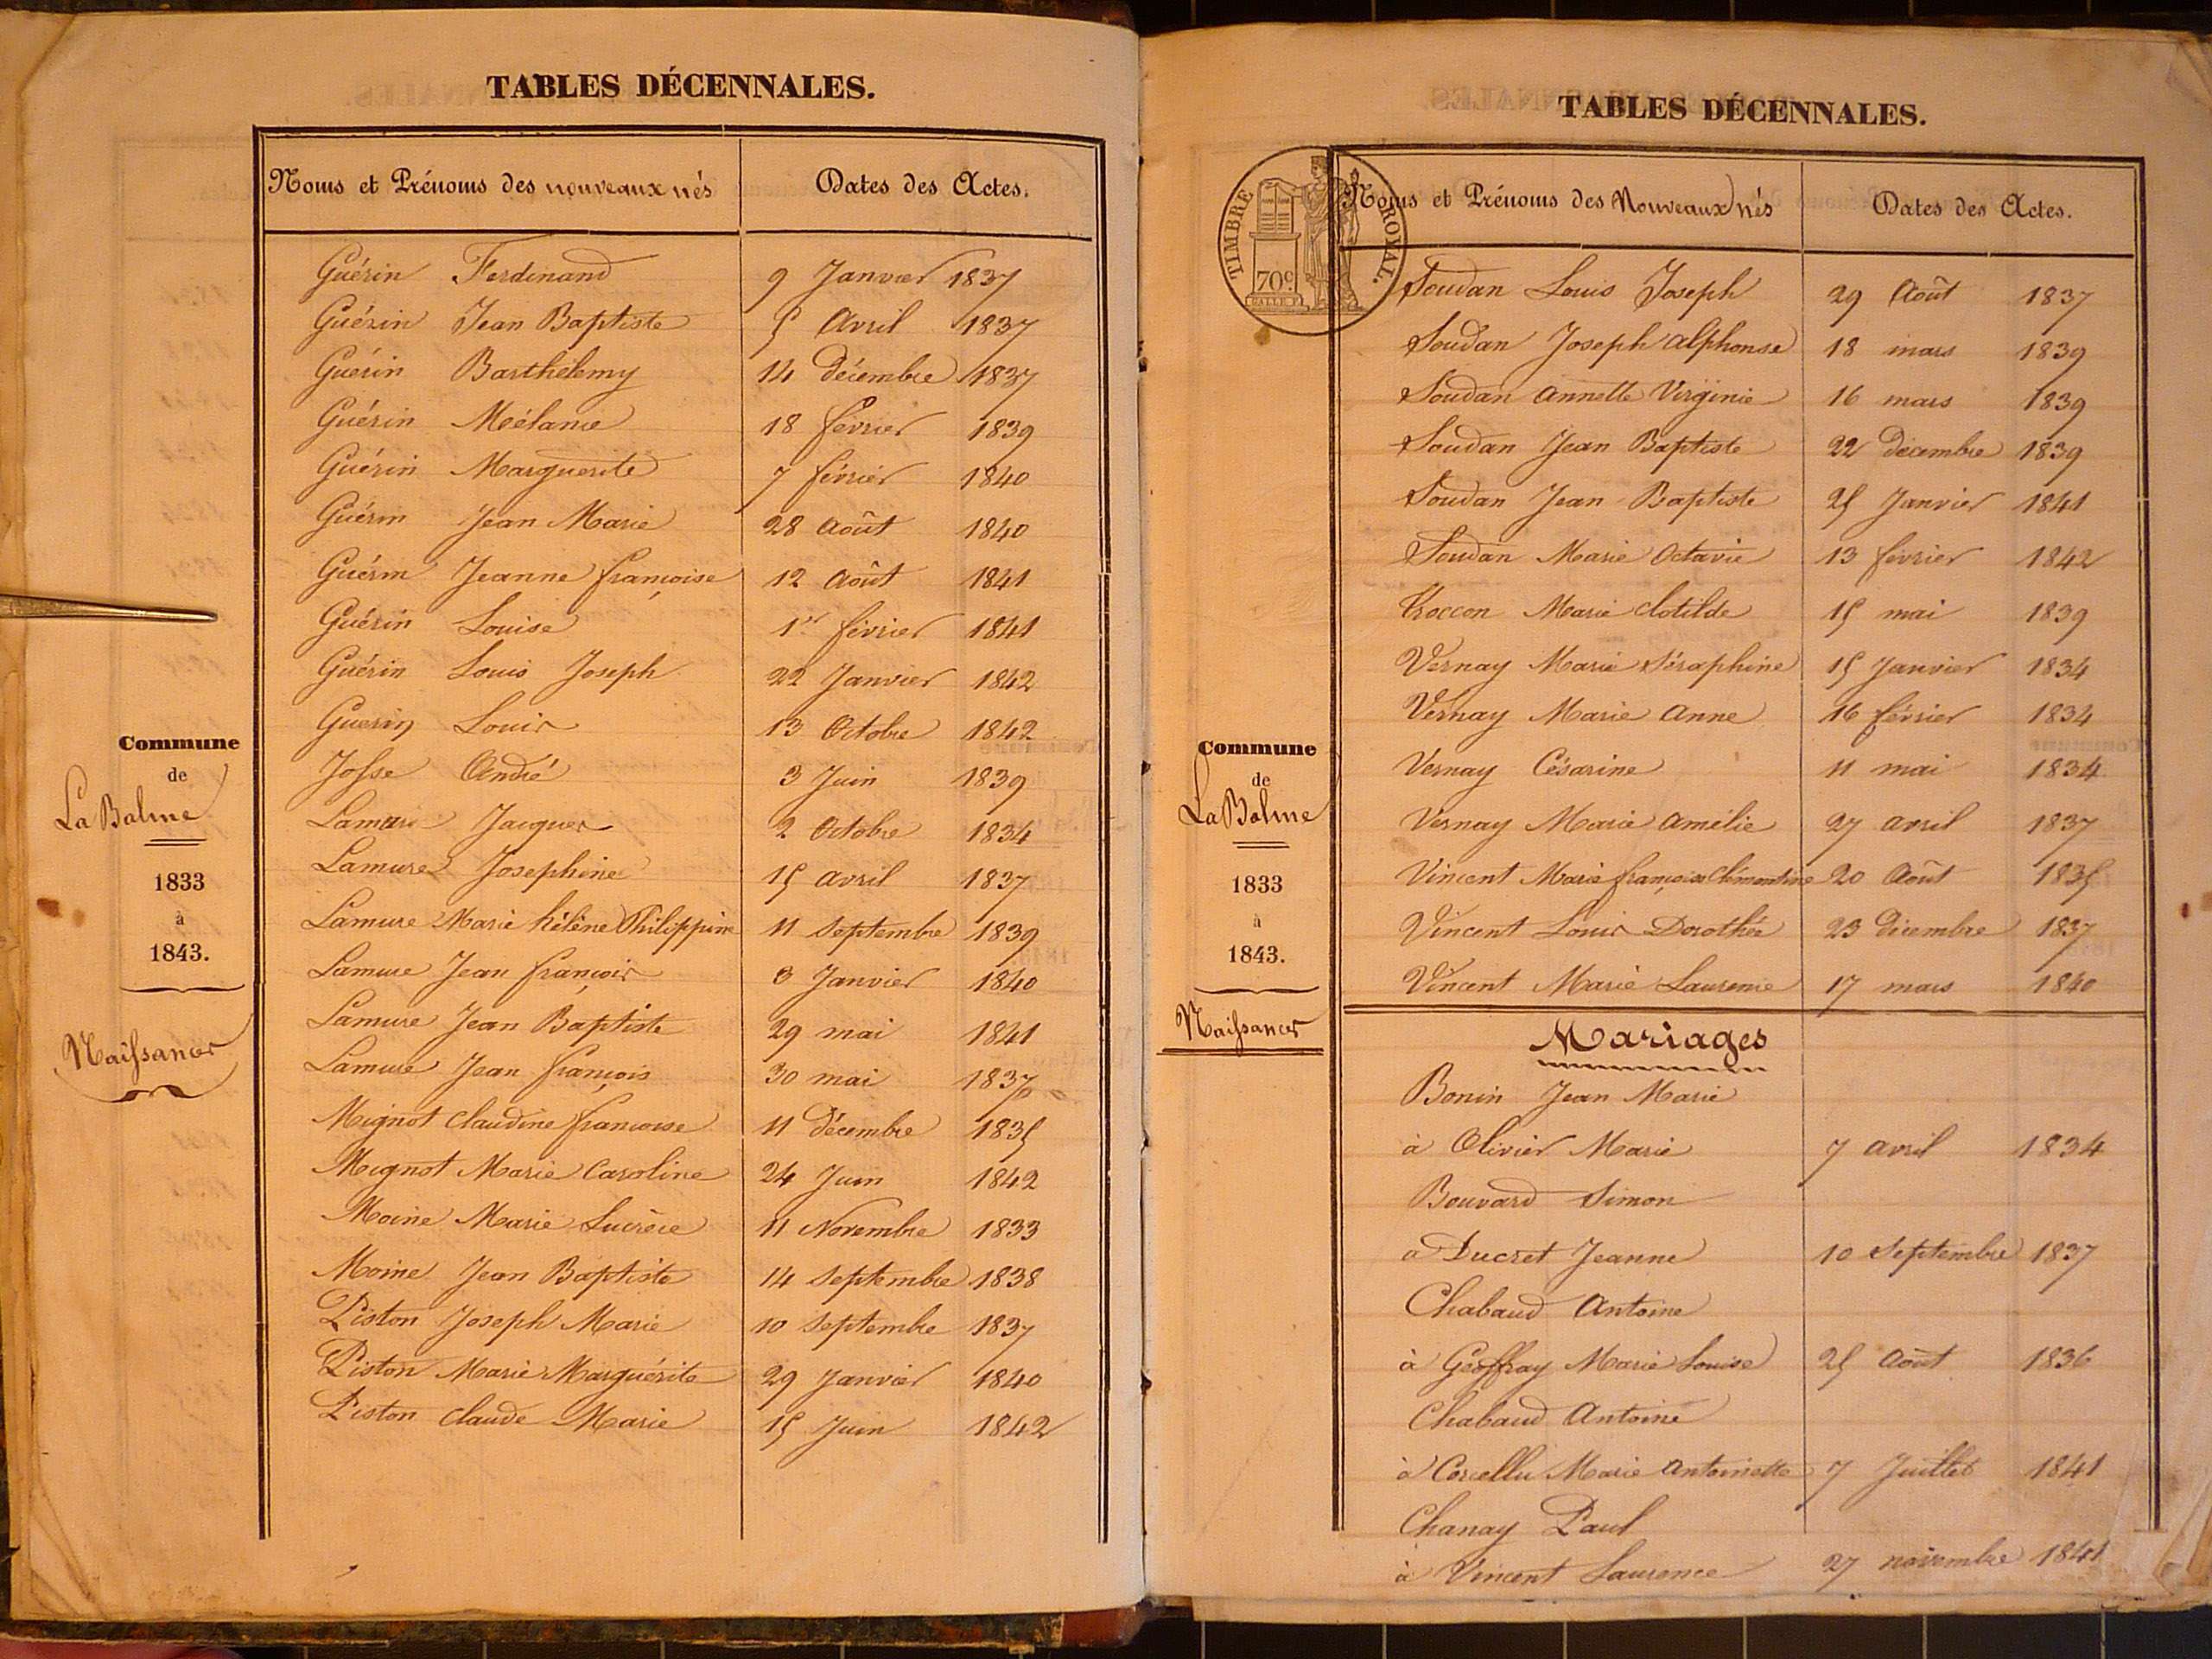 TABLES DÉCENNALES.
Noms et Prénoms des nouveaux nés
Dates des Actes.
Commune
de
La Balme
1833
à
1843.
Naissances
Guérin Ferdinand 9 Janvier 1837
Guérin Jean Baptiste 5 Avril 1837
Guérin Barthélemy 14 décembre 1837
Guérin Mélanie 18 février 1839
Guérin Marguerite 7 février 1840
Guérin Jean Marie 28 Août 1840
Guérin Jeanne françoise 12 Août 1841
Guérin Louise 1er février 1841
Guérin Louis Joseph 22 Janvier 1842
Guerin Louis 13 Octobre 1842
Josse André 3 Juin 1839
Lamure Jacques 2 Octobre 1834
Lamure Josephine 15 avril 1837
Lamure Marie hélène Philippine 11 septembre 1839
Lamure Jean françois 3 Janvier 1840
Lamure Jean Baptiste 29 mai 1841
Lamure Jean françois 30 mai 1837
Mignot Claudine françoise 11 Décembre 1835
Mignot Marie Caroline 24 Juin 1842
Moine Marie Lucrèce 11 Novembre 1833
Moine Jean Baptiste 14 septembre 1838
Piston Joseph Marie 10 septembre 1837
Piston Marie Marguérite 29 Janvier 1840
Piston Claude Marie 15 Juin 1842
TABLES DÉCENNALES.
TIMBRE ROYAL.
70c
Noms et Prénoms des Nouveaux nés
Dates des Actes.
Commune
de
La Balme
1833
à
1843.
Naissances
Soudan Louis Joseph 29 Août 1837
Soudan Joseph alphonse 18 mars 1839
Soudan annette Virginie 16 mars 1839
Soudan Jean Baptiste 22 Décembre 1839
Soudan Jean Baptiste 25 Janvier 1841
Soudan Marie Octavie 13 février 1842
Troccon Marie clotilde 15 mai 1839
Vernay Marie Séraphine 15 Janvier 1834
Vernay Marie Anne 16 février 1834
Vernay Césarine 11 mai 1834
Vernay Marie amélie 27 avril 1837
Vincent Marie françoise Clémentine 20 Août 1835
Vincent Louis Dorothée 23 Décembre 1837
Vincent Marie Laurence 17 mars 1840
Mariages
Bonin Jean Marie
à Olivier Marie 7 avril 1834
Bouvard Simon
a Ducret Jeanne 10 Septembre 1837
Chabaud Antoine
à Geoffray Marie Louise 25 Août 1836
Chabaud Antoine
à Marie Antoinette 7 Juillet 1841
Chanay Paul
à Vincent Laurence 27 novembre 1841